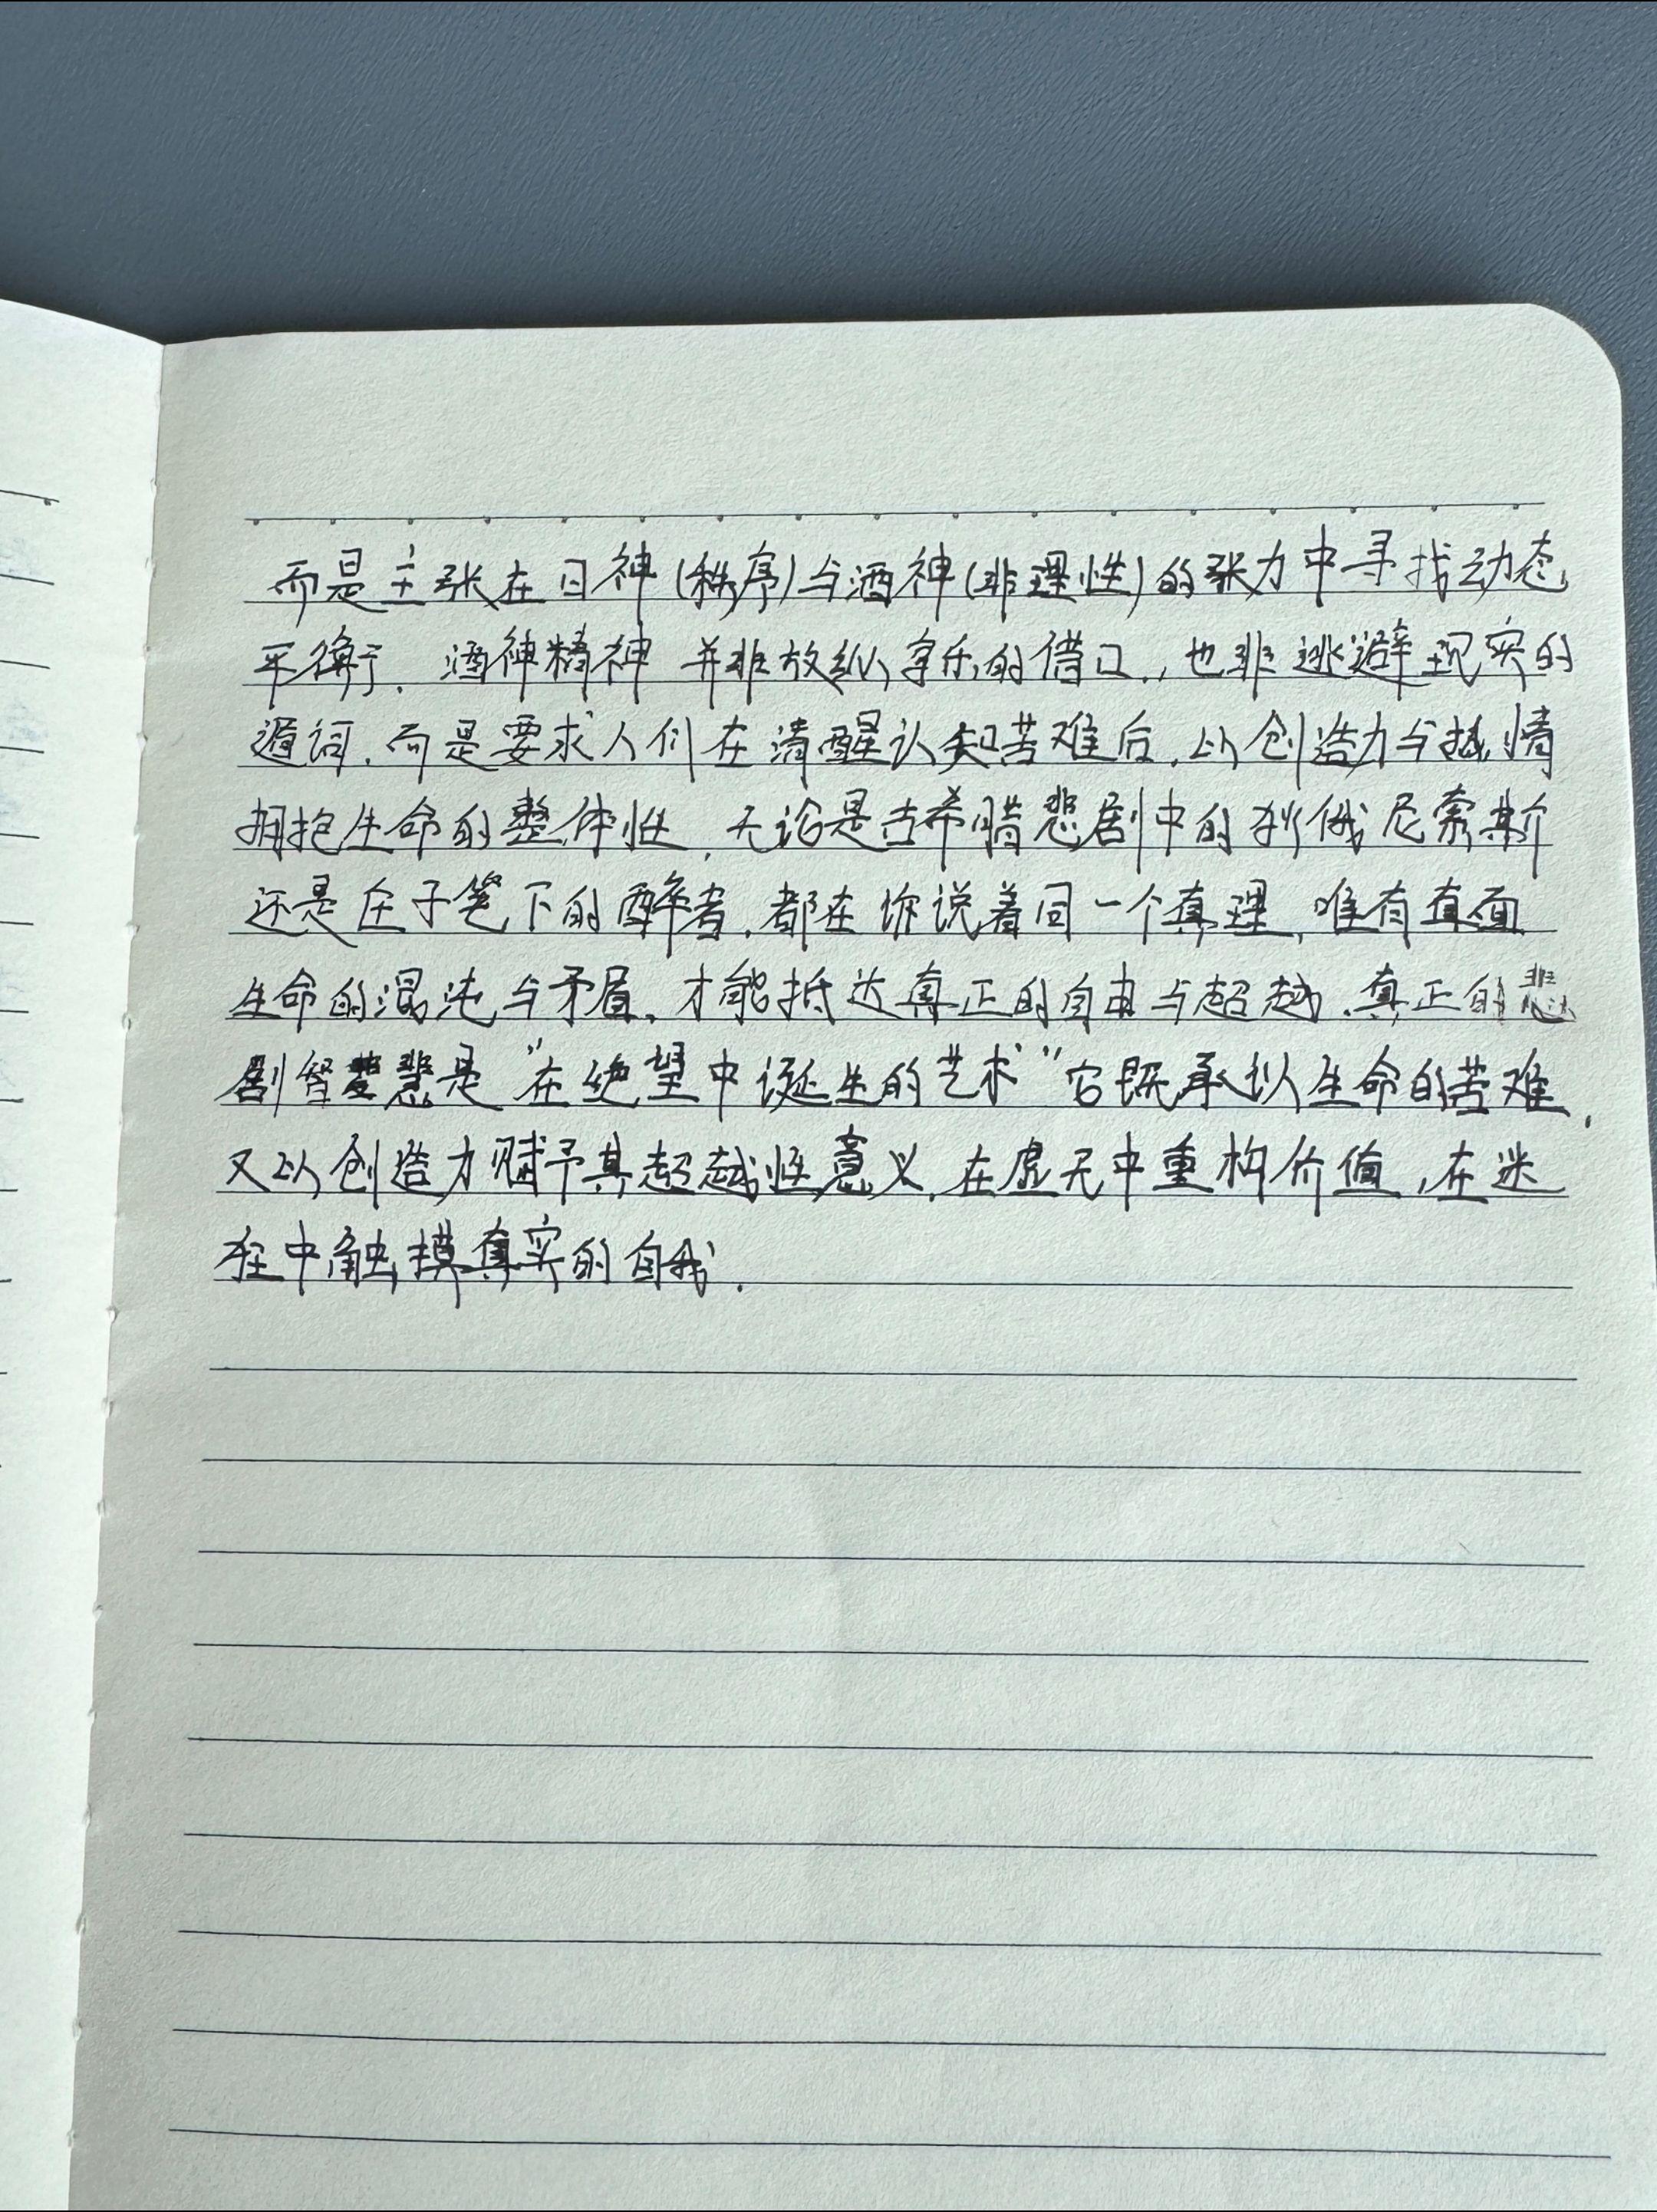 而是主张在日神(秩序)与酒神(非理性)的张力中寻找动态
平衡. 酒神精神 并非放纵享乐的借口., 也非逃避现实的
遁词. 而是要求人们在清醒认知苦难后. 以创造力与热情
拥抱生命的整体性. 无论是古希腊悲剧中的狄俄尼索斯
还是庄子笔下的醉者. 都在诉说着同一个真理, 唯有直面
生命的混沌与矛盾. 才能抵达真正的自由与超越. 真正的悲
剧智慧是"在绝望中诞生的艺术"它既承认生命的苦难,
又以创造力赋予其超越性意义. 在虚无中重构价值, 在迷
狂中触摸真实的自我.